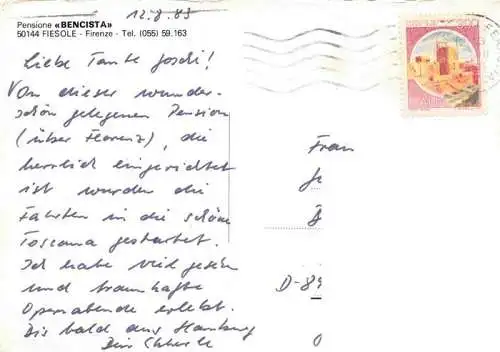 12.8.83
Pensione «BENCISTA»
50144 FIESOLE - Firenze - Tel. (055) 59.163
Liebe Tante
Von dieser wunder-
schön gelegenen Pension
(über Florenz), die
herrlich eingerichtet
ist wurden die
Fahrten in die schöne
Toscana gestartet.
Ich habe viel gesehen
und traumhafte
Opernabende erlebt.
Bis bald aus Hamburg
Frau